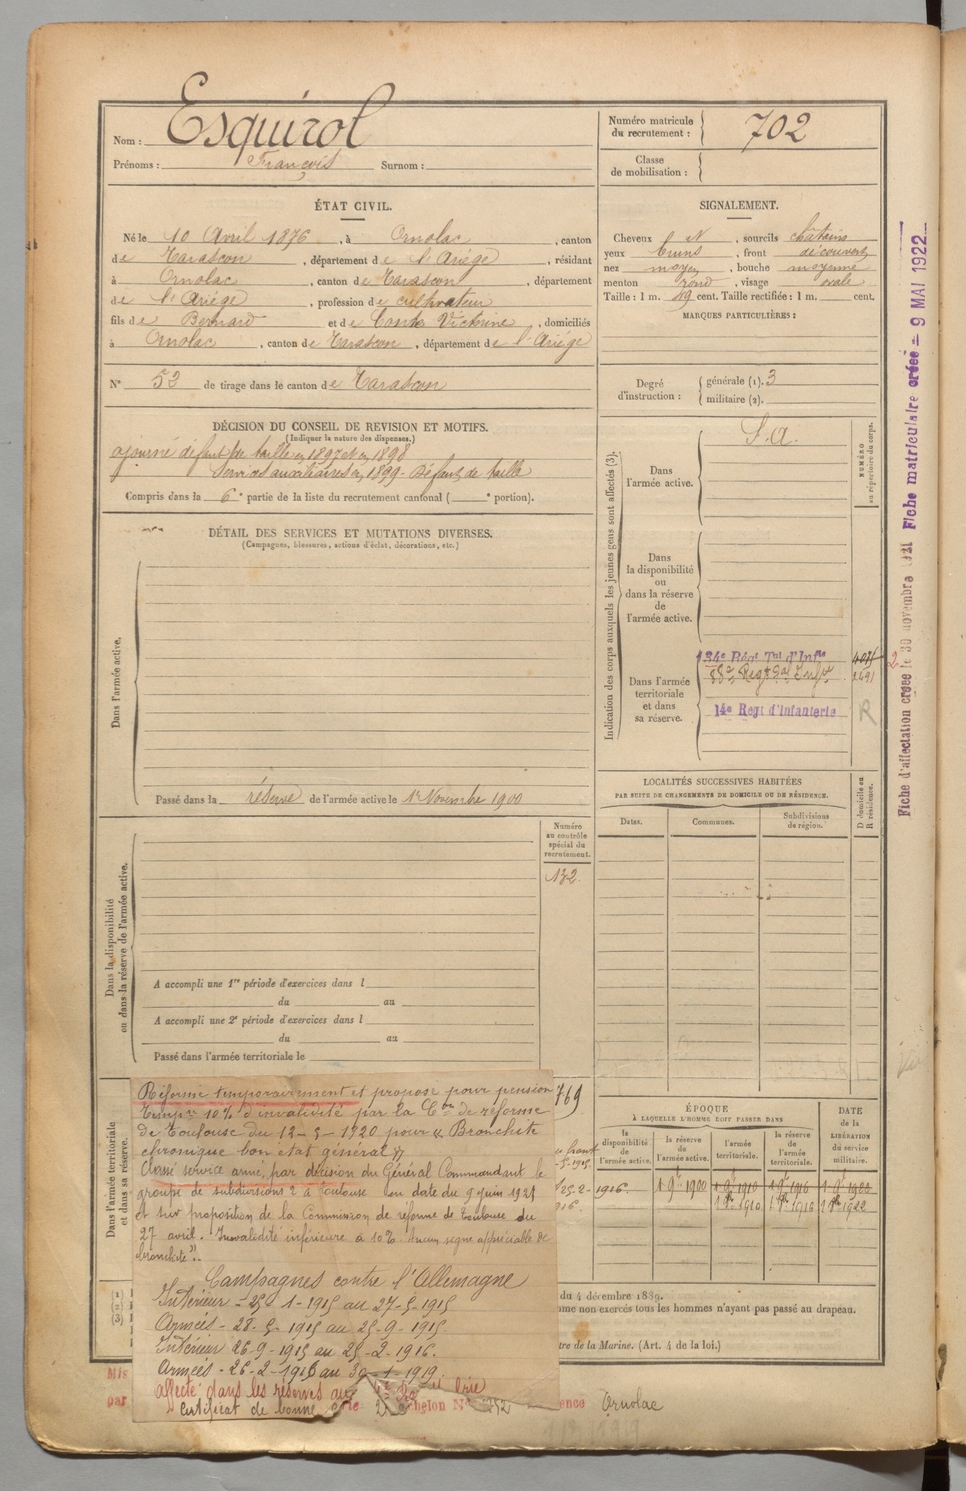 Nom : Esquirol
Prénoms : François Surnom :
Numéro matricule
du recrutement : 702
Classe
de mobilisation :
ÉTAT CIVIL.
Né le 10 Avril 1876, à Ornolac, canton
de Tarascon, département de l'Ariège, résidant
à Ornolac, canton de Tarascon, département
de l'Ariège, profession de cultivateur
fils de Bernard et de Conte Victorine, domiciliés
à Ornolac, canton de Tarascon, département de l'Ariège
N° 52 de tirage dans le canton de Tarascon
SIGNALEMENT.
Cheveux N, sourcils châtains
yeux bruns, front découvert
nez moyen, bouche moyenne
menton rond, visage ovale
Taille : 1 m. 49 cent. Taille rectifiée : 1 m. cent.
MARQUES PARTICULIÈRES :
Degré
d'instruction :
générale (1). 3
militaire (2).
DÉCISION DU CONSEIL DE REVISION ET MOTIFS.
(Indiquer la nature des dispenses.)
ajourné défaut de taille en 1897 et en 1898
Services auxiliaires en 1899 - Défaut de taille
Compris dans la 6e partie de la liste du recrutement cantonal ( e portion).
DÉTAIL DES SERVICES ET MUTATIONS DIVERSES.
(Campagnes, blessures, actions d'éclat, décorations, etc.)
Dans l'armée active.
Passé dans la réserve de l'armée active le 1er Novembre 1900
Indication des corps auxquels les jeunes gens sont affectés (3).
NUMÉRO
au répertoire du corps.
Dans
l'armée active.
S.A.
Dans
la disponibilité
ou
dans la réserve
de
l'armée active.
Dans l'armée
territoriale
et dans
sa réserve.
134e Régt Tal d'Infie
14e Regt d'Infanterie
R
LOCALITÉS SUCCESSIVES HABITÉES
PAR SUITE DE CHANGEMENTS DE DOMICILE OU DE RÉSIDENCE.
Dates.
Communes.
Subdivisions
de région.
D domicile ou
R résidence.
Numéro
au contrôle
spécial du
recrutement.
132
Dans la disponibilité
ou dans la réserve de l'armée active.
A accompli une 1re période d'exercices dans l
du au
A accompli une 2e période d'exercices dans l
du au
Passé dans l'armée territoriale le
Dans l'armée territoriale
et dans sa réserve.
Réformé temporairement et proposé pour pension
tempre 10% d'invalidité par la Cion de réforme
de Toulouse du 12-5-1920 pour « Bronchite
chronique bon état général »
Classé service armé, par décision du Général Commandant le
groupe de subdivisions 2 à Toulouse en date du 9 juin 1921
et sur proposition de la Commission de réforme de Toulouse du
27 avril. "Invalidité inférieure à 10%. Aucun signe appréciable de
bronchite".
Campagnes contre l'Allemagne
Intérieur - 25-1-1915 au 27-5-1915
Armées - 28-5-1915 au 25-9-1915
Intérieur 26-9-1915 au 25-2-1916.
Armées - 26-2-1916 au 30-1-1919
affecté dans les réserves au
certificat de bonne
769
ÉPOQUE
À LAQUELLE L'HOMME DOIT PASSER DANS
la
disponibilité
de
l'armée active.
la réserve
de
l'armée active.
l'armée
territoriale.
la réserve
de
l'armée
territoriale.
DATE
de la
LIBÉRATION
du service
militaire.
1 9bre 1900 1 9bre 1910 1 9bre 1916 1 9bre 1922
1 9bre 1910 1 9bre 1916 1 9bre 1922
(1)
(2)
(3)
du 4 décembre 1889.
mme non exercés tous les hommes n'ayant pas passé au drapeau.
tre de la Marine. (Art. 4 de la loi.)
Mis
par
helon N° 
ence Ornolac
Fiche d'affectation créée le 30 novembre 1921 Fiche matriculaire créée = 9 MAI 1922